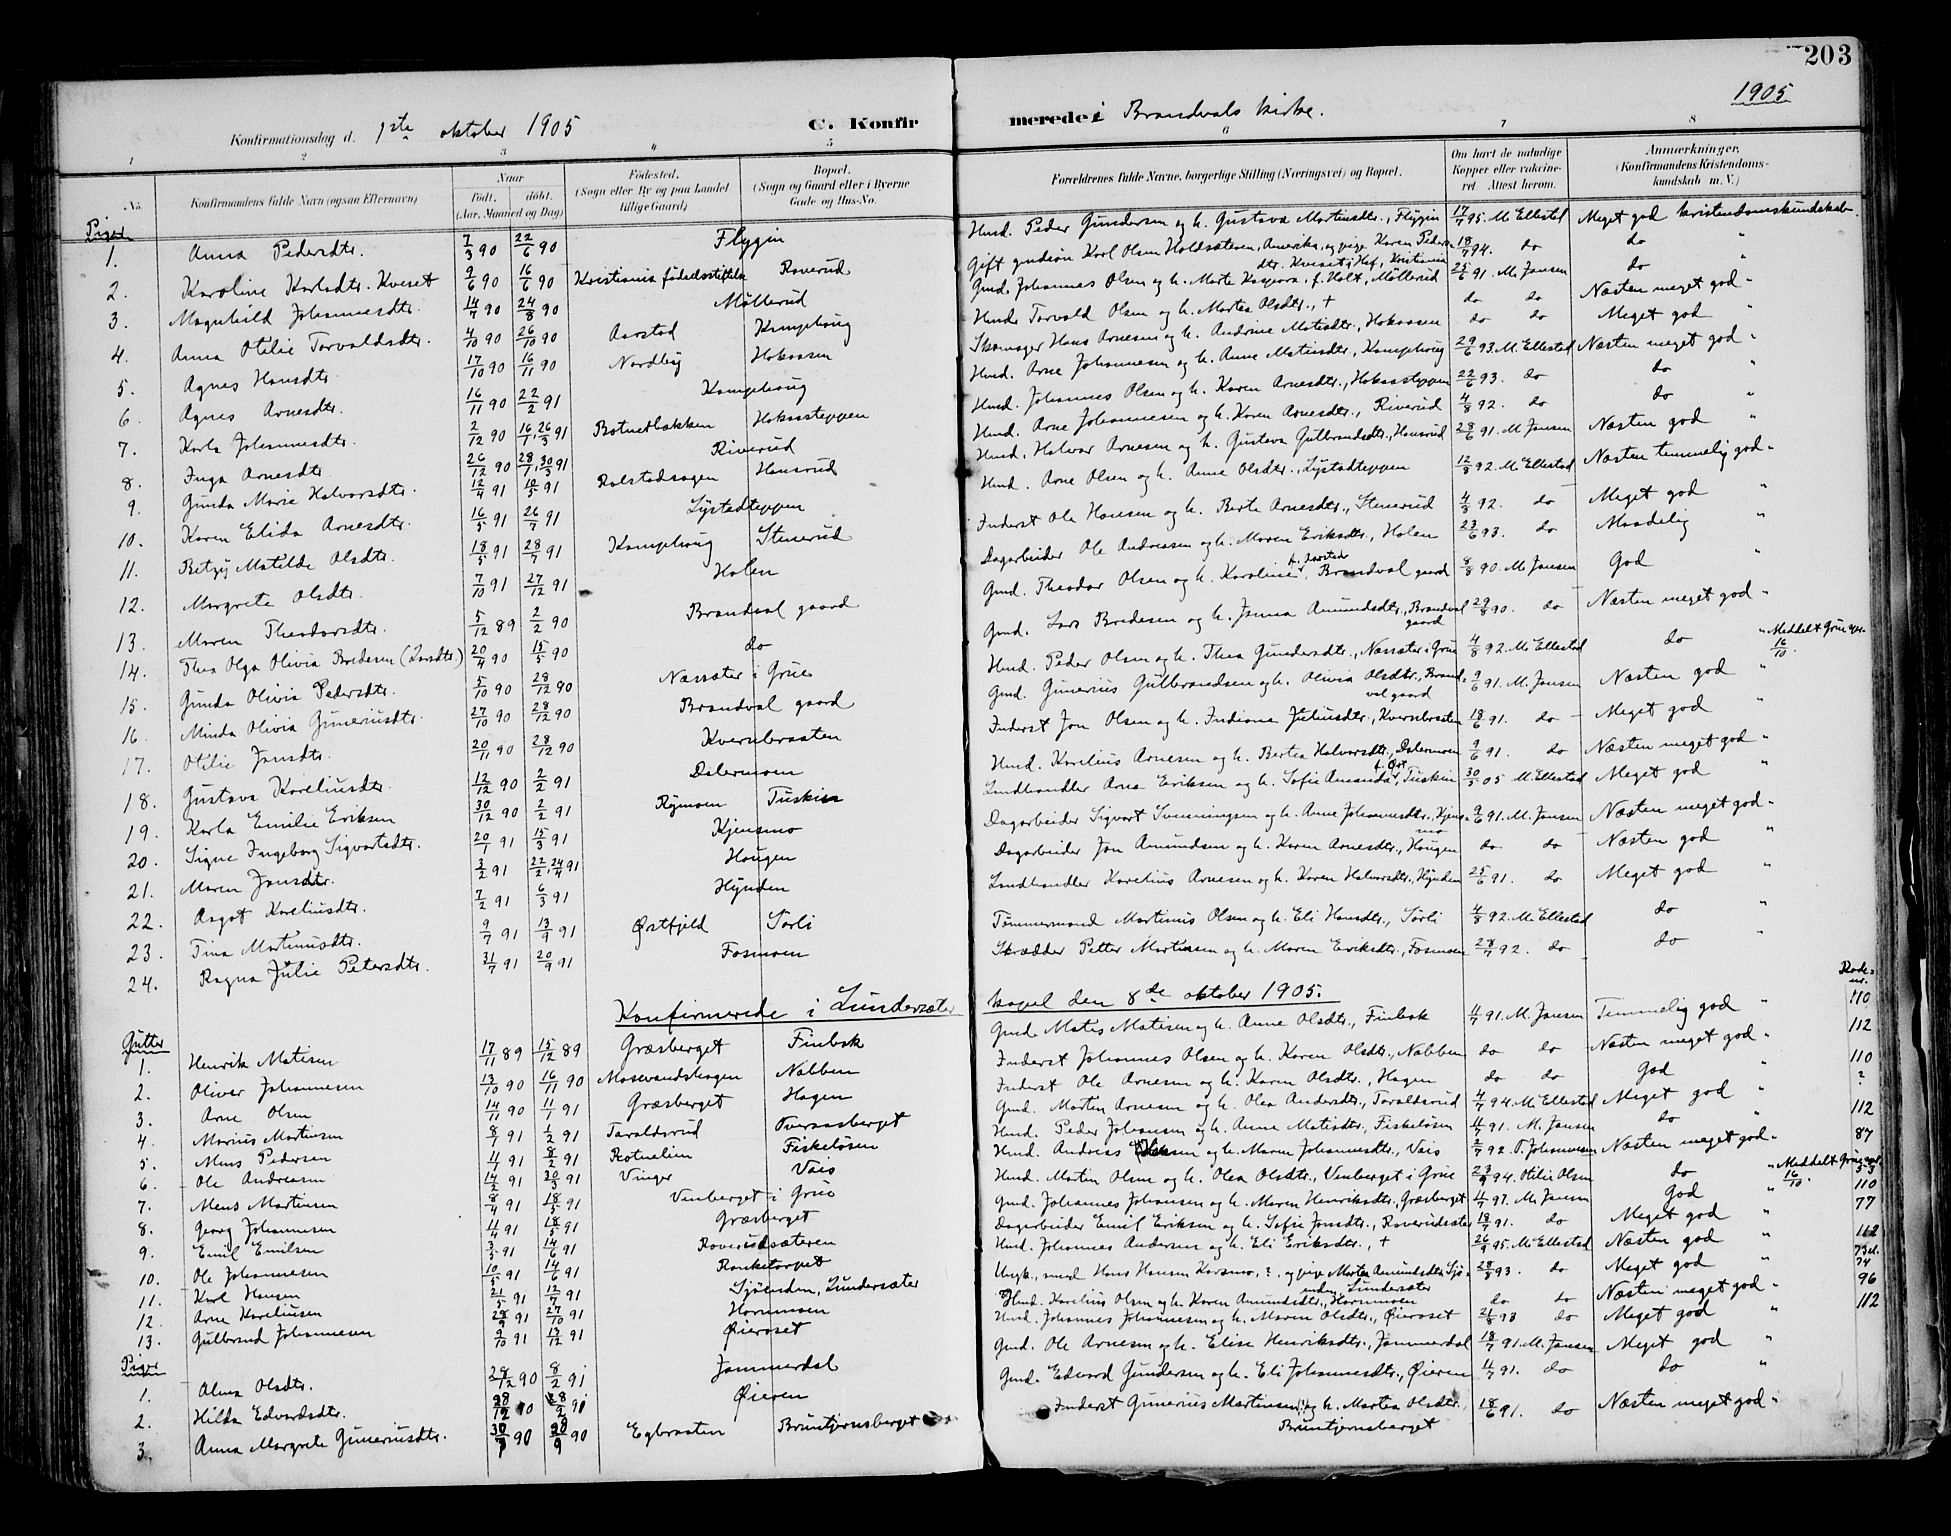 203
1905
Konfirmationsdag d. 1ste oktober 1905 C. Konfirmerede i Brandvals kirke.
1 2 3 4 5 6 7 8
No. Konfirmandens fulde Navn (ogsaa Efternavn) Naar Født. døbt. (Aar, Maaned og Dag) Fødested. (Sogn eller By og paa Landet tillige Gaard) Bopæl. (Sogn og Gaard eller i Byerne Gade og Hus-No. Forældrenes fulde Navne, borgerlige Stilling (Næringsvei) og Bopæl. Om havt de naturlige Kopper eller vakcineret Attest herom. Anmærkninger. (Konfirmandens Kristendomskundskab m. V.)
Piger
1. Anna Pedersdtr. 7/3 90 22/6 90 Flygin Husmd. Peder Gundersen og h. Gustava Martinsdtr., Flygin 17/7 95. M. Ellestad Meget god kristendomskundskab
2. Karoline Karlsdtr. Kveset 9/6 90 16/6 90 Kristiania fødselsstiftelse Roverud Gift gndsøn Karl Olsen Holdsæteren, Amerika, og pige Karen Pedersdtr. Kveset i Hof, Kristiania 18/7 94. do do "
3. Magnhild Johannesdtr. 14/7 90 24/8 90 Møllerud Gmd. Johannes Olsen og h. Marte Kaspara, f. Holt, Møllerud 25/6 91. M. Jansen do "
4. Anna Otilie Torvaldsdtr. 4/10 90 26/10 90 Aarstad Kampehaug Husmd. Torvald Olsen og h. Martea Olsdtr., † do do Næsten meget god "
5. Agnes Hansdtr. 17/10 90 16/11 90 Nordby Hokaasen Skomager Hans Arnesen og h. Andrine Matisdtr., Hokaasen do do Meget god
6. Agnes Arnesdtr. 16/11 90 22/2 91 Kampehaug Husmd. Arne Johannesen og h. Anne Matisdtr., Kampehaug 29/6 93. M. Ellestad Næsten meget god "
7. Karla Johannesdtr. 2/12 90 16/1, 26/3 91 Botnerbakken Hokaasteppen Husmd. Johannes Olsen og h. Karen Arnesdtr., Hokaasteppen 22/6 93. do do "
8. Inga Arnesdtr. 26/12 90 28/1, 30/3 91 Riverud Husmd. Arne Johannesen og h. Karen Arnesdtr., Riverud 4/8 92. do do "
9. Gunda Marie Halvorsdtr. 12/4 91 10/5 91 Rolstadsagen Hansrud Husmd. Halvor Arnesen og h. Gustava Gulbrandsdtr., Hansrud 28/6 91. M. Jansen Næsten god "
10. Karen Elida Arnesdtr. 16/5 91 26/7 91 Lystadteppen Husmd. Arne Olsen og h. Anne Olsdtr., Lystadteppen 12/8 92. M. Ellestad Næsten temmelig god "
11. Betzy Matilde Olsdtr. 18/5 91 28/7 91 Kampehaug Stenerud Inderst Ole Hansen og h. Berte Arnesdtr., Stenerud 4/8 92. do Meget god "
12. Margrete Olsdtr. 7/10 91 27/12 91 Holen Dagarbeider Ole Andreassen og h. Maren Eriksdtr., Holen 23/6 93. do Maadelig "
13. Maren Theodorsdtr. 5/12 89 2/2 90 Brandval gaard Gmd. Theodor Olsen og h. Karoline, Brandval gaard 8/8 90. M. Jansen God "
14. Thea Olga Olivia Bredesen (Larsdtr.) 20/4 90 15/5 90 do Gmd. Lars Bredesen og h. Janna Amundsdtr., Brandval gaard 29/8 90. do Næsten meget god "
15. Gunda Olivia Pedersdtr. 5/10 90 28/12 90 Næssæter i Grue Husmd. Peder Olsen og h. Thea Gundersdtr., Næssæter i Grue 4/8 92. M. Ellestad do " Meddelt Grue 16/10.
16. Minda Olivia Guneriusdtr. 27/10 90 28/12 90 Brandval gaard Gmd. Gunerius Gulbrandsen og h. Olivia Olsdtr., Brandval gaard 9/6 91. M. Jansen Næsten god "
17. Otilie Jonsdtr. 20/11 90 28/12 90 Kvernbraaten Inderst Jon Olsen og h. Indiane Juliusdtr., Kvernbraaten 18/6 91. do Meget god "
18. Gustava Koreliusdtr. 12/12 90 2/2 91 Dalermoen Husmd. Korelius Arnesen og h. Bertea Halvorsdtr., Dalermoen 9/6 91. do Næsten meget god "
19. Karla Emilie Eriksen 30/12 90 2/2 91 Rymoen Tuskin Landhandler Arne Eriksen og h. Sofie Amanda, Tuskin 30/5 05 M. Ellestad Meget god "
20. Signe Ingeborg Sigvartsdtr. 20/1 91 15/3 91 Kjensmo Dagarbeider Sigvart Svenningsen og h. Anne Johannesdtr., Kjensmo 9/6 91. M. Jansen Næsten meget god "
21. Maren Jonsdtr. 3/2 91 22/2, 24/4 91 Haugen Dagarbeider Jon Amundsen og h. Karen Arnesdtr., Haugen do. do. Næsten god "
22. Aagot Koreliusdtr. 7/2 91 6/3 91 Hynden Landhandler Korelius Arnesen og h. Karen Halvorsdtr., Hynden 25/6 91. do Meget god "
23. Tina Martinusdtr. 9/7 91 13/9 91 Østfjeld Sorli Tømmermand Martinus Olsen og h. Eli Hansdtr., Sorli 4/8 92. M. Ellestad do "
24. Ragna Julie Petersdtr. 31/7 91 20/9 91 Fosmoen Skrædder Petter Martinsen og h. Maren Eriksdtr., Fosmoen 28/7 92. do do "
Konfirmerede i Lundersæter kapel den 8de oktober 1905.
Gutter
1. Henrik Matisen 17/11 89 15/12 89 Græsberget Finbek Gmd. Matis Matisen og h. Anne Olsdtr., Finbek 4/7 91. M. Jansen Temmelig god " 110
2. Oliver Johannesen 13/10 90 16/11 90 Mosevandshagen Nabben Inderst Johannes Olsen og h. Karen Olsdtr., Nabben do do Næsten meget god " 112
3. Arne Olsen 14/11 90 11/1 91 Græsberget Hagen Inderst Ole Arnesen og h. Karen Olsdtr., Hagen do do God " 110
4. Marius Martinsen 8/1 91 1/2 91 Taraldsrud Overaasberget Gmd. Morten Arnesen og h. Olea Andersdtr., Taraldsrud 4/7 94. M. Ellestad Meget god " ?
5. Mens Pedersen 11/1 91 8/2 91 Rotnelien Fiskeløsen Husmd. Peder Johansen og h. Anne Matisdtr., Fiskeløsen 4/7 91. M. Jansen do " 112
6. Ole Andreasen 14/2 91 30/3 91 Vinger Vais Husmd. Andreas Olsen og h. Maren Johannesdtr., Vais 2/7 92 T. Johannesen Næsten meget god " 87
7. Mens Martinsen 8/4 91 18/5 91 Vinberget i Grue Husmd. Martin Olsen og h. Olea Olsdtr., Vinberget i Grue 23/9 94. Otilie Olsen do " Meddelt Grue 16/10.
8. Georg Johannesen 11/4 91 18/5 91 Græsberget Gmd. Johannes Johansen og h. Maren Henriksdtr., Græsberget 4/7 97. M. Jansen God " 110
9. Emil Emilsen 3/5 91 14/6 91 Roverudsæteren Dagarbeider Emil Eriksen og h. Sofie Jonsdtr., Roverudsæter 18/7 91. do Meget god " 77
10. Ole Johannesen 10/5 91 14/6 91 Ranketorpet Husmd. Johannes Andersen og h. Eli Eriksdtr., † 26/9 95. M. Ellestad Næsten god " 112
11. Karl Hansen 21/5 91 12/7 91 Sjøenden, Lundersæter Ungk., smed Hans Hansen Korsmo, ?, og pige Martea Amundsdtr. Sjøenden, Lundersæter 28/8 93. do Meget god "
12. Arne Koreliusen 29/9 91 27/10 91 Hornmoen Husmd. Korelius Olsen og h. Karen Amundsdtr., Hornmoen do do Næsten meget god " 96
13. Gulbrand Johannesen 9/10 91 13/12 91 Øieroset Husmd. Johannes Johannesen og h. Maren Olsdtr., Øieroset 21/8 93 do Meget god " 112
Piger
1. Alma Olsdtr. 28/12 90 8/2 91 Jammerdal Gmd. Ole Arnesen og h. Elise Henriksdtr., Jammerdal 18/7 91. M. Jansen Meget god "
2. Hilda Edvardsdtr. 28/12 90 8/2 91 Øieren Gmd. Edvard Gundersen og h. Eli Johannesdtr., Øieren 4/7 91. do do "
3. Anna Margrete Guneriusdtr. 30/7 90 28/9 90 Egbraaten Bruntjernsberget Inderst Gunerius Martinsen og h. Martea Olsdtr., Bruntjernsberget 18/6 91. do Næsten meget god "